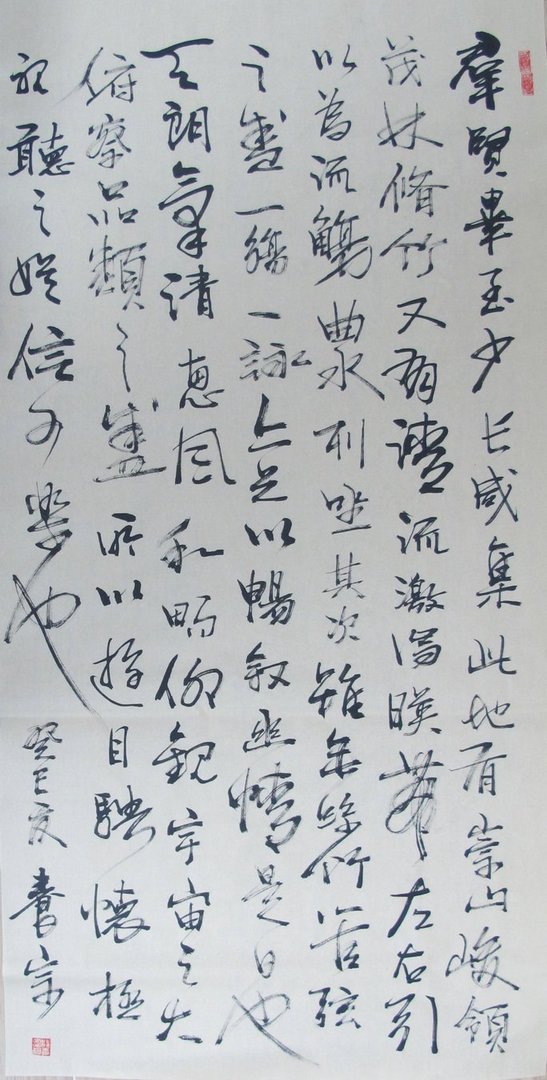 羣賢畢至少長咸集此地有崇山峻領
茂林脩竹又有清流激湍暎帶左右引
以為流觴曲水列坐其次雖無絲竹管弦
之盛一觴一詠亦足以暢叙幽情是日也
天朗氣清惠風和暢仰觀宇宙之大
俯察品類之盛所以遊目騁懷極
視聽之娛信可樂也
癸巳夏